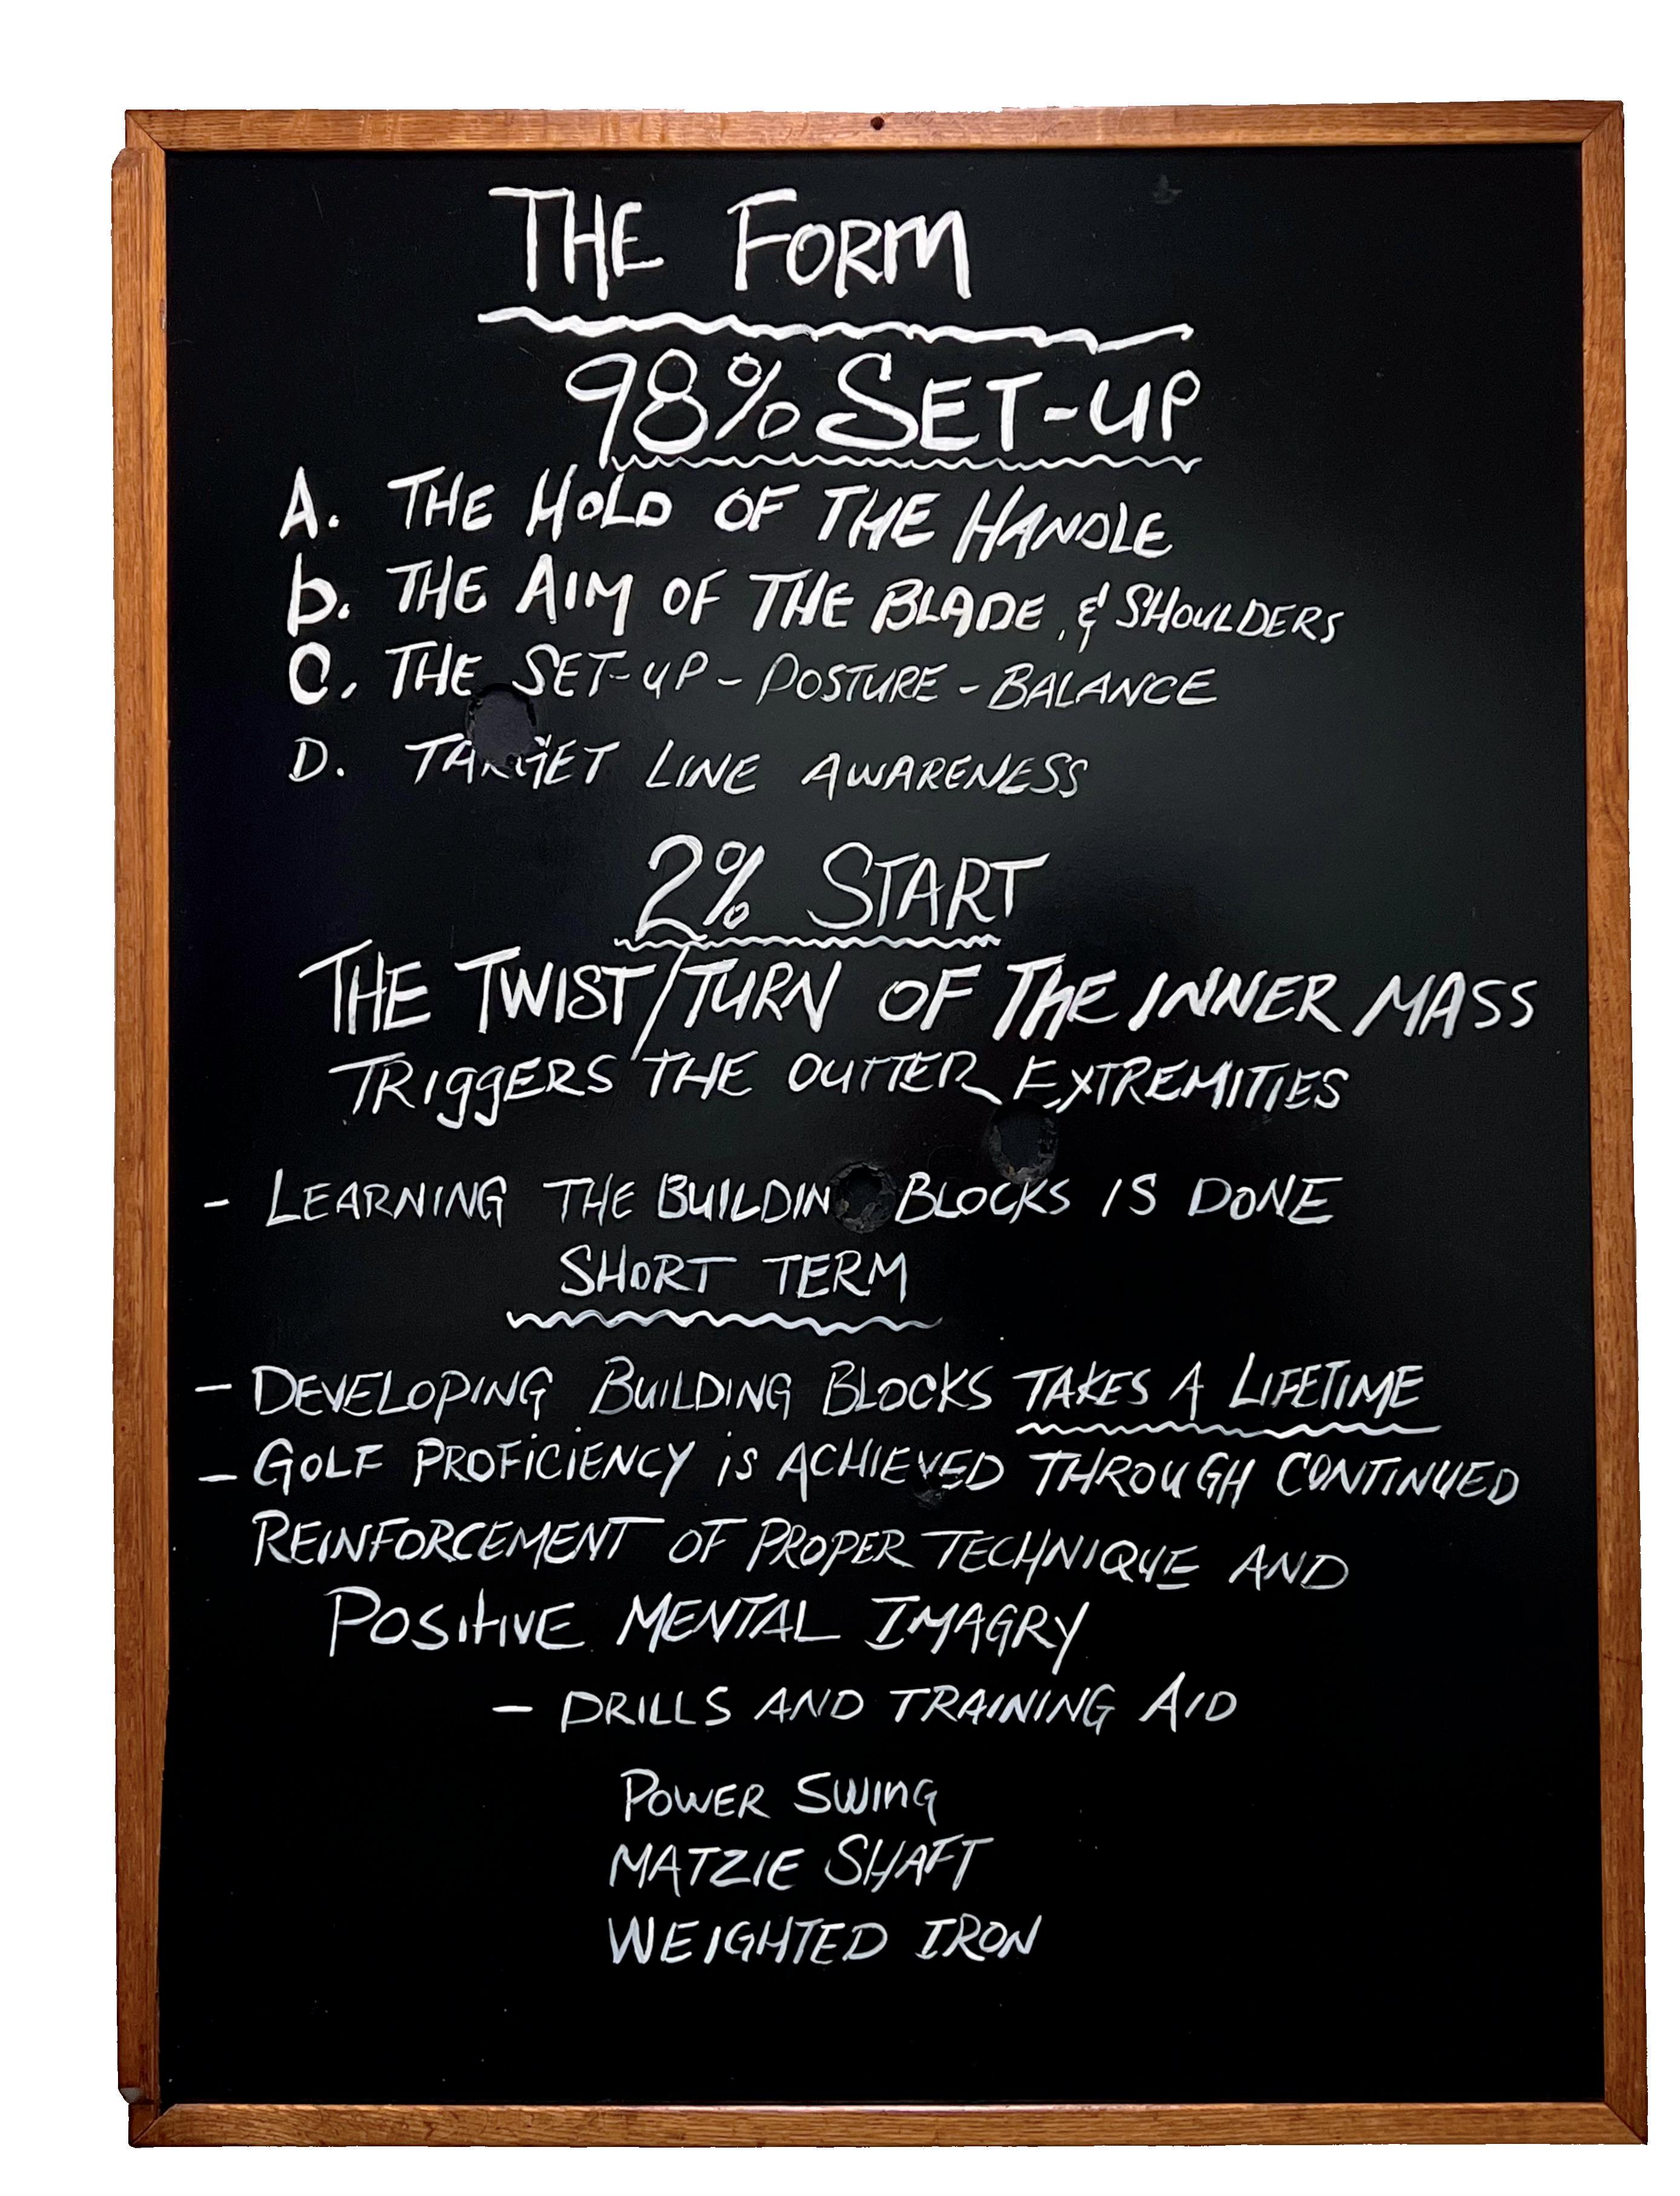 THE FORM
98% SET-UP
A. THE HOLD OF THE HANDLE
b. THE AIM OF THE BLADE, & SHOULDERS
C. THE SET-UP - POSTURE - BALANCE
D. TARGET LINE AWARENESS
2% START
THE TWIST/TURN OF THE INNER MASS
TRIGGERS THE OUTTER EXTREMITIES
- LEARNING THE BUILDIN BLOCKS IS DONE
SHORT TERM
- DEVELOPING BUILDING BLOCKS TAKES A LIFETIME
- GOLF PROFICIENCY IS ACHIEVED THROUGH CONTINUED
REINFORCEMENT OF PROPER TECHNIQUE AND
POSITIVE MENTAL IMAGRY
- DRILLS AND TRAINING AID
POWER SWING
MATZIE SHAFT
WEIGHTED IRON